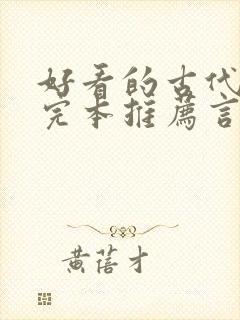 好看的古代
完本推薦言
黄蓓才